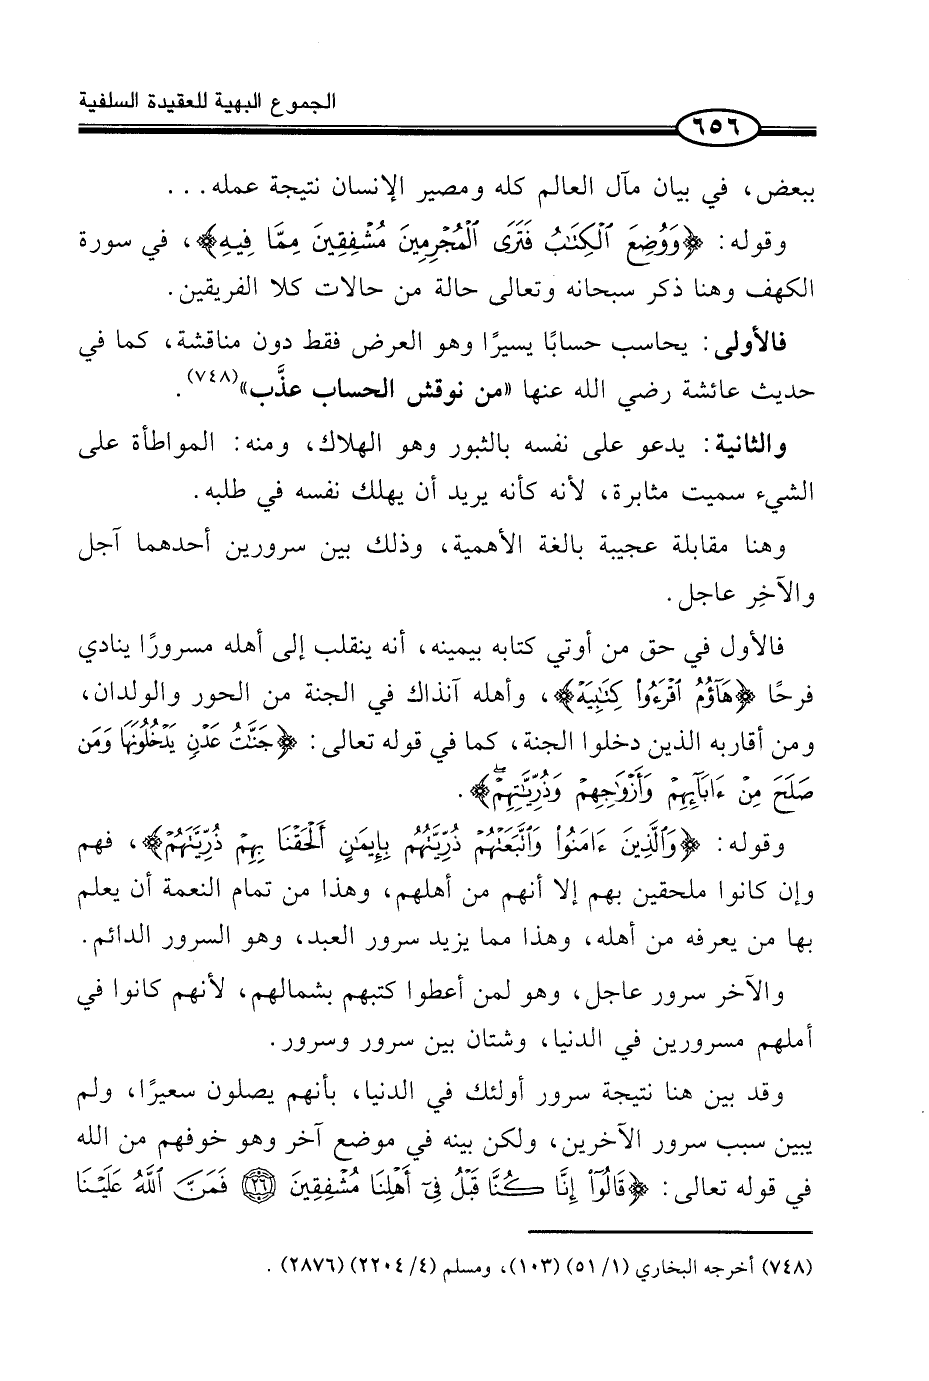 الجموع البهية للعقيدة السلفية
٦٥٦
ببعض، في بيان مآل العالم كله ومصير الإنسان نتيجة عمله...
وقوله: ﴿وَوُضِعَ ٱلْكِتَٰبُ فَتَرَى ٱلْمُجْرِمِينَ مُشْفِقِينَ مِمَّا فِيهِ﴾، في سورة
الكهف وهنا ذكر سبحانه وتعالى حالة من حالات كلا الفريقين.
فالأولى: يحاسب حسابًا يسيرًا وهو العرض فقط دون مناقشة، كما في
حديث عائشة رضي الله عنها «من نوقش الحساب عذَّب»(٧٤٨).
والثانية: يدعو على نفسه بالثبور وهو الهلاك، ومنه: المواطأة على
الشيء سميت مثابرة، لأنه كأنه يريد أن يهلك نفسه في طلبه.
وهنا مقابلة عجيبة بالغة الأهمية، وذلك بين سرورين أحدهما آجل
والآخِر عاجل.
فالأول في حق من أوتي كتابه بيمينه، أنه ينقلب إلى أهله مسرورًا ينادي
فرحًا ﴿هَآؤُمُ ٱقْرَءُوا۟ كِتَٰبِيَهْ﴾، وأهله آنذاك في الجنة من الحور والولدان،
ومن أقاربه الذين دخلوا الجنة، كما في قوله تعالى: ﴿جَنَّٰتُ عَدْنٍ يَدْخُلُونَهَا وَمَن
صَلَحَ مِنْ ءَابَآئِهِمْ وَأَزْوَٰجِهِمْ وَذُرِّيَّٰتِهِمْ ۖ﴾.
وقوله: ﴿وَٱلَّذِينَ ءَامَنُوا۟ وَٱتَّبَعَتْهُمْ ذُرِّيَّتُهُم بِإِيمَٰنٍ أَلْحَقْنَا بِهِمْ ذُرِّيَّتَهُمْ﴾، فهم
وإن كانوا ملحقين بهم إلا أنهم من أهلهم، وهذا من تمام النعمة أن يعلم
بها من يعرفه من أهله، وهذا مما يزيد سرور العبد، وهو السرور الدائم.
والآخر سرور عاجل، وهو لمن أعطوا كتبهم بشمالهم، لأنهم كانوا في
أملهم مسرورين في الدنيا، وشتان بين سرور وسرور.
وقد بين هنا نتيجة سرور أولئك في الدنيا، بأنهم يصلون سعيرًا، ولم
يبين سبب سرور الآخرين، ولكن بينه في موضع آخر وهو خوفهم من الله
في قوله تعالى: ﴿قَالُوٓا۟ إِنَّا كُنَّا قَبْلُ فِىٓ أَهْلِنَا مُشْفِقِينَ ٢٦ فَمَنَّ ٱللَّهُ عَلَيْنَا
(٧٤٨) أخرجه البخاري (١/ ٥١) (١٠٣)، ومسلم (٤/ ٢٢٠٤) (٢٨٧٦).